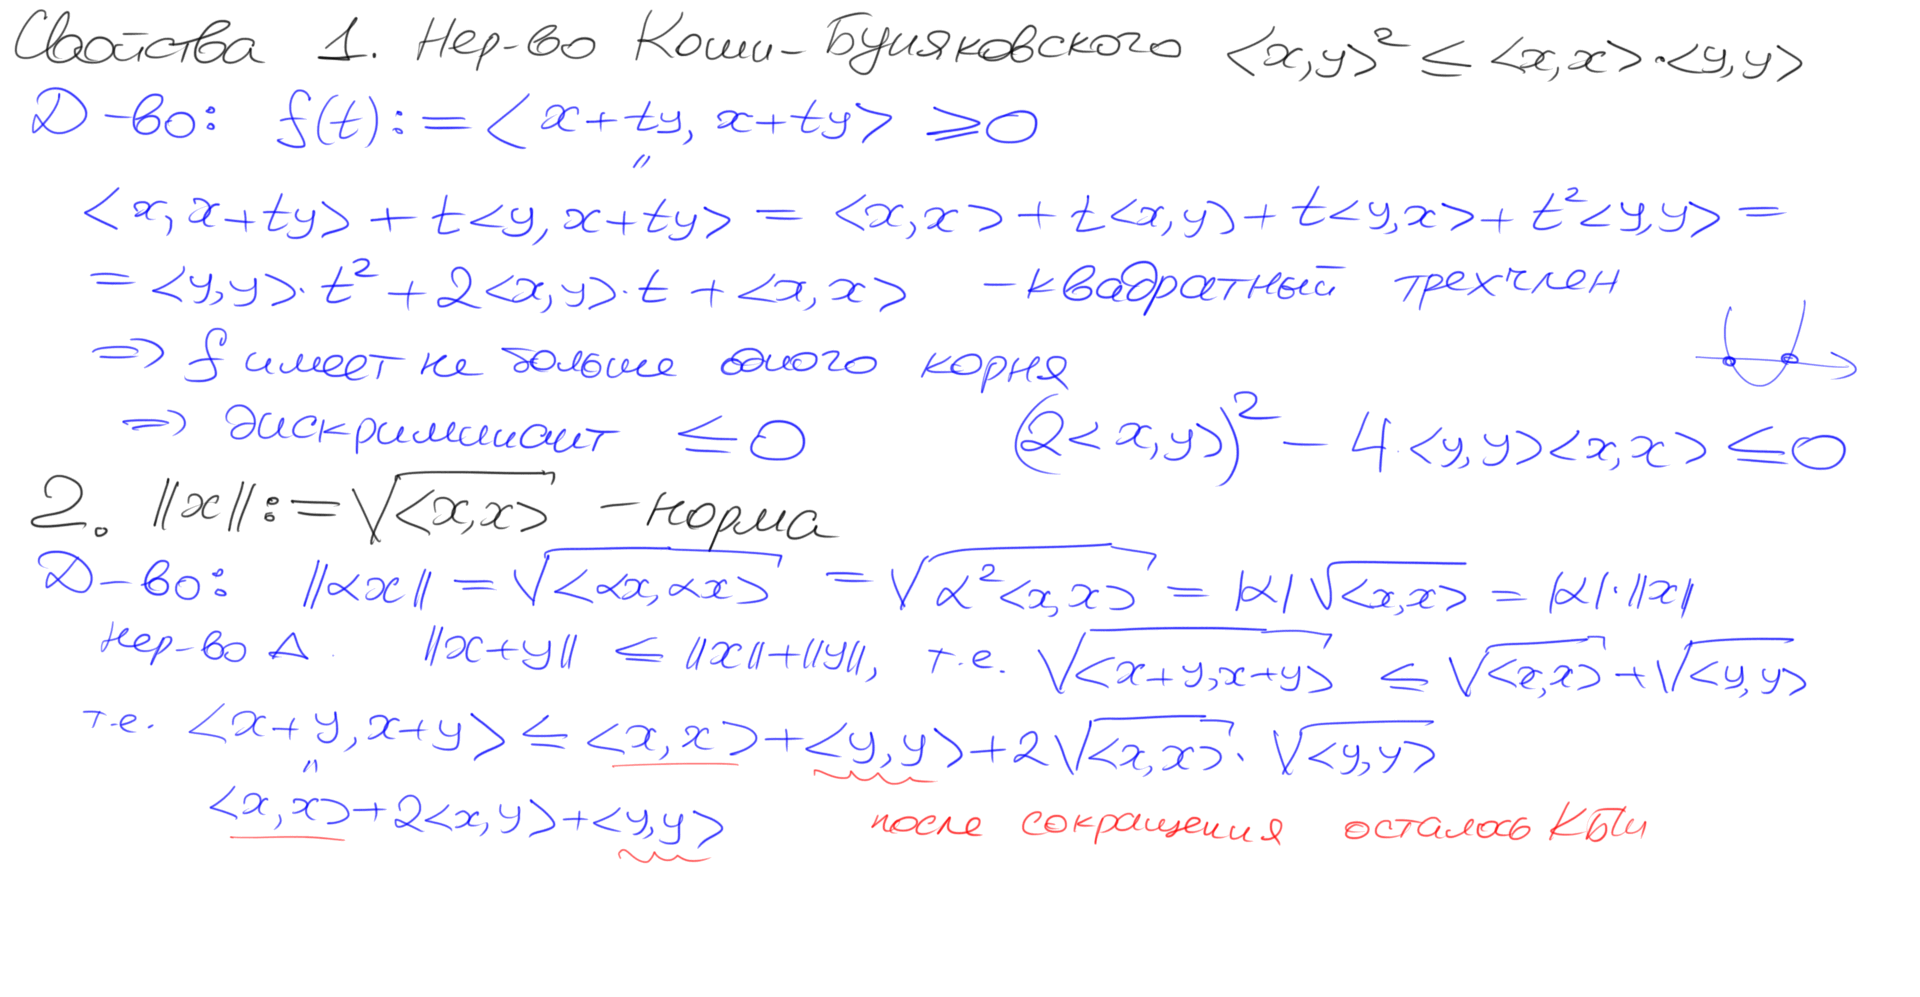 Свойства 1. Нер-во Коши-Буняковского <x,y>² ≤ <x,x>·<y,y>
Д-во: f(t) := <x+ty, x+ty> ≥ 0
"
<x, x+ty> + t<y, x+ty> = <x,x> + t<x,y> + t<y,x> + t²<y,y> =
= <y,y>·t² + 2<x,y>·t + <x,x> - квадратный трехчлен
=> f имеет не больше одного корня
=> дискриминант ≤ 0 (2<x,y>)² - 4·<y,y><x,x> ≤ 0
2. ||x|| := √<x,x> - норма
Д-во: ||αx|| = √<αx,αx> = √α²<x,x> = |α|√<x,x> = |α|·||x||
Нер-во Δ. ||x+y|| ≤ ||x||+||y||, т.е. √<x+y,x+y> ≤ √<x,x> + √<y,y>
т.е. <x+y,x+y> ≤ <x,x>+<y,y>+2√<x,x>·√<y,y>
"
<x,x>+2<x,y>+<y,y> после сокращения осталось КБШ